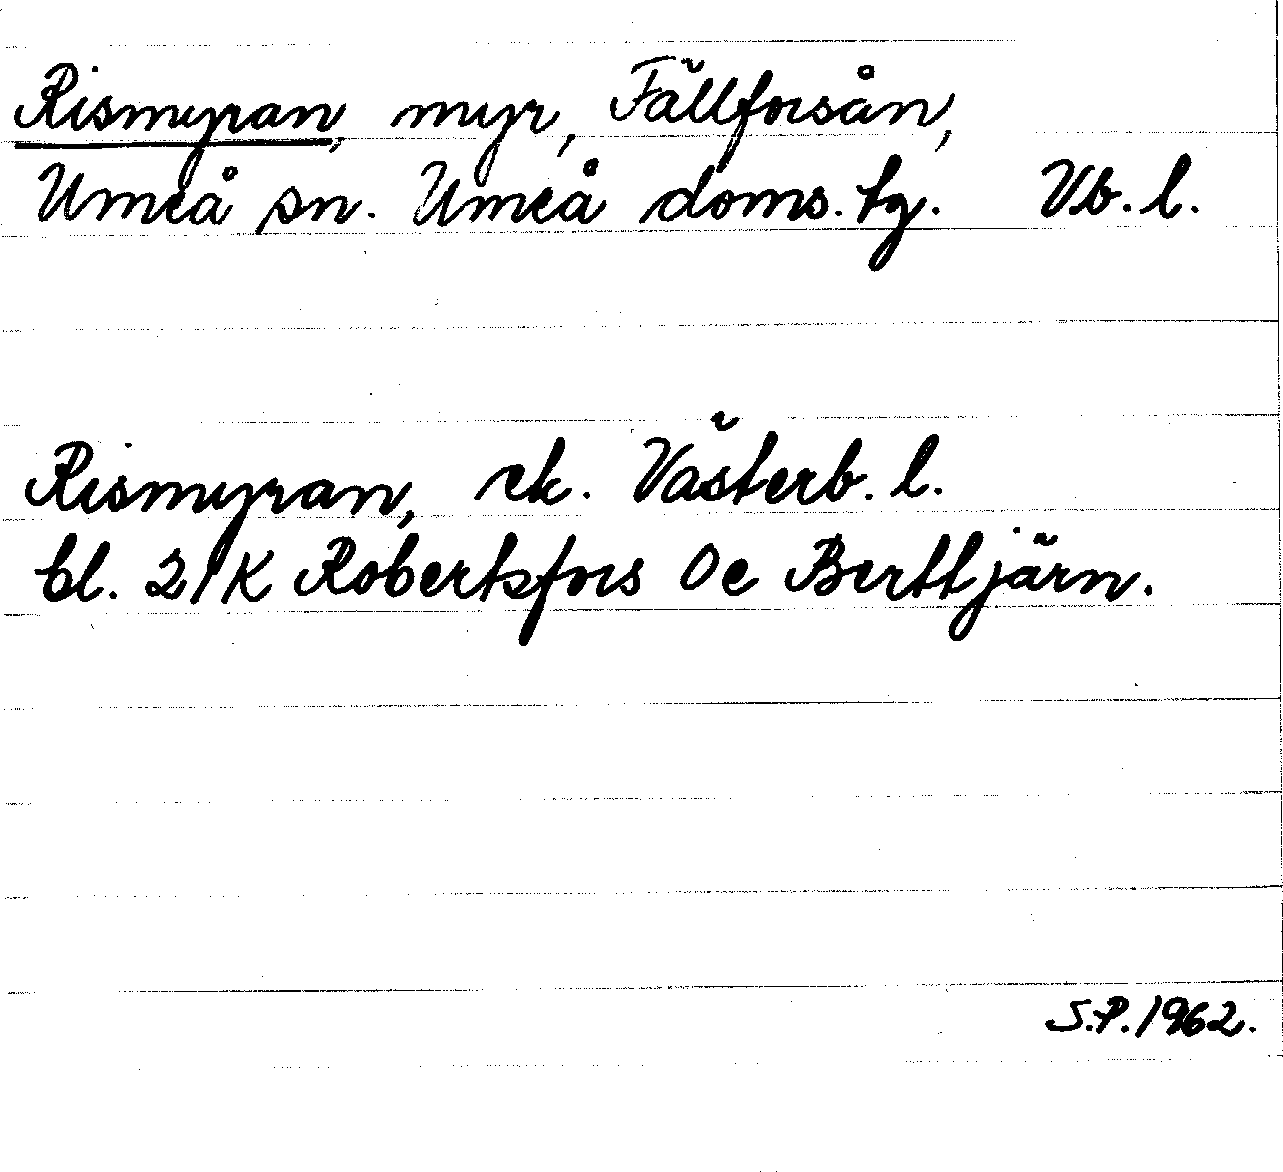 Rismyran, myr, Fällforsån,
Umeå sn. Umeå doms. tg. Vb. l.
Rismyran, ek. Västerb. l.
bl. 21K Robertsfors Oe Berttjärn.
S.P. 1962.